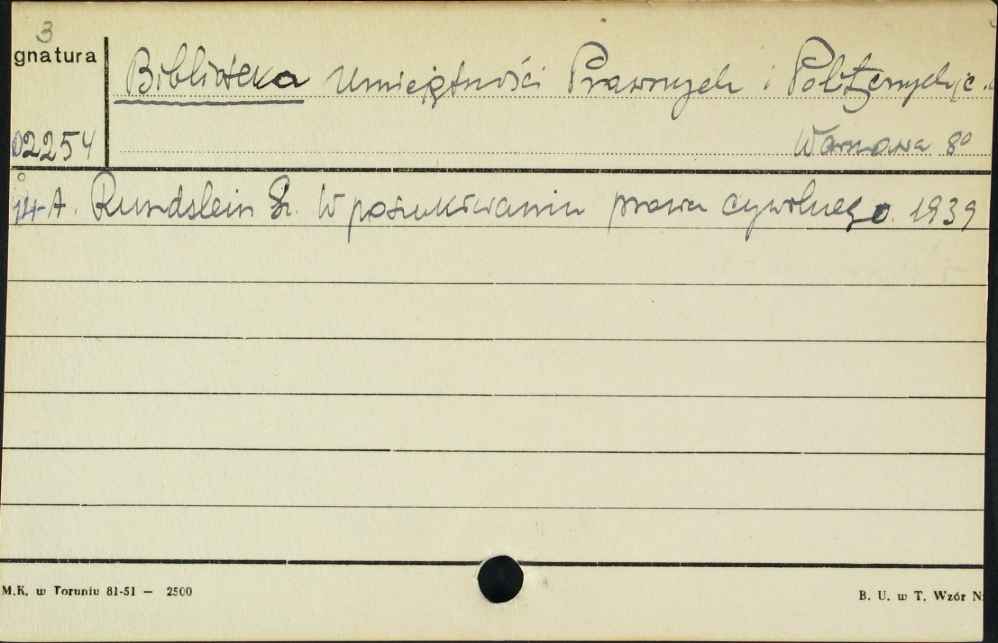 3
gnatura
Biblioteka Umiejętności Prawnych i Politycznych
02254
Warszawa 8°
A. Rundstein Sz. W poszukiwaniu prawa cywilnego. 1939
M.K. w Toruniu 81-51 — 2500
B. U. w T. Wzór N